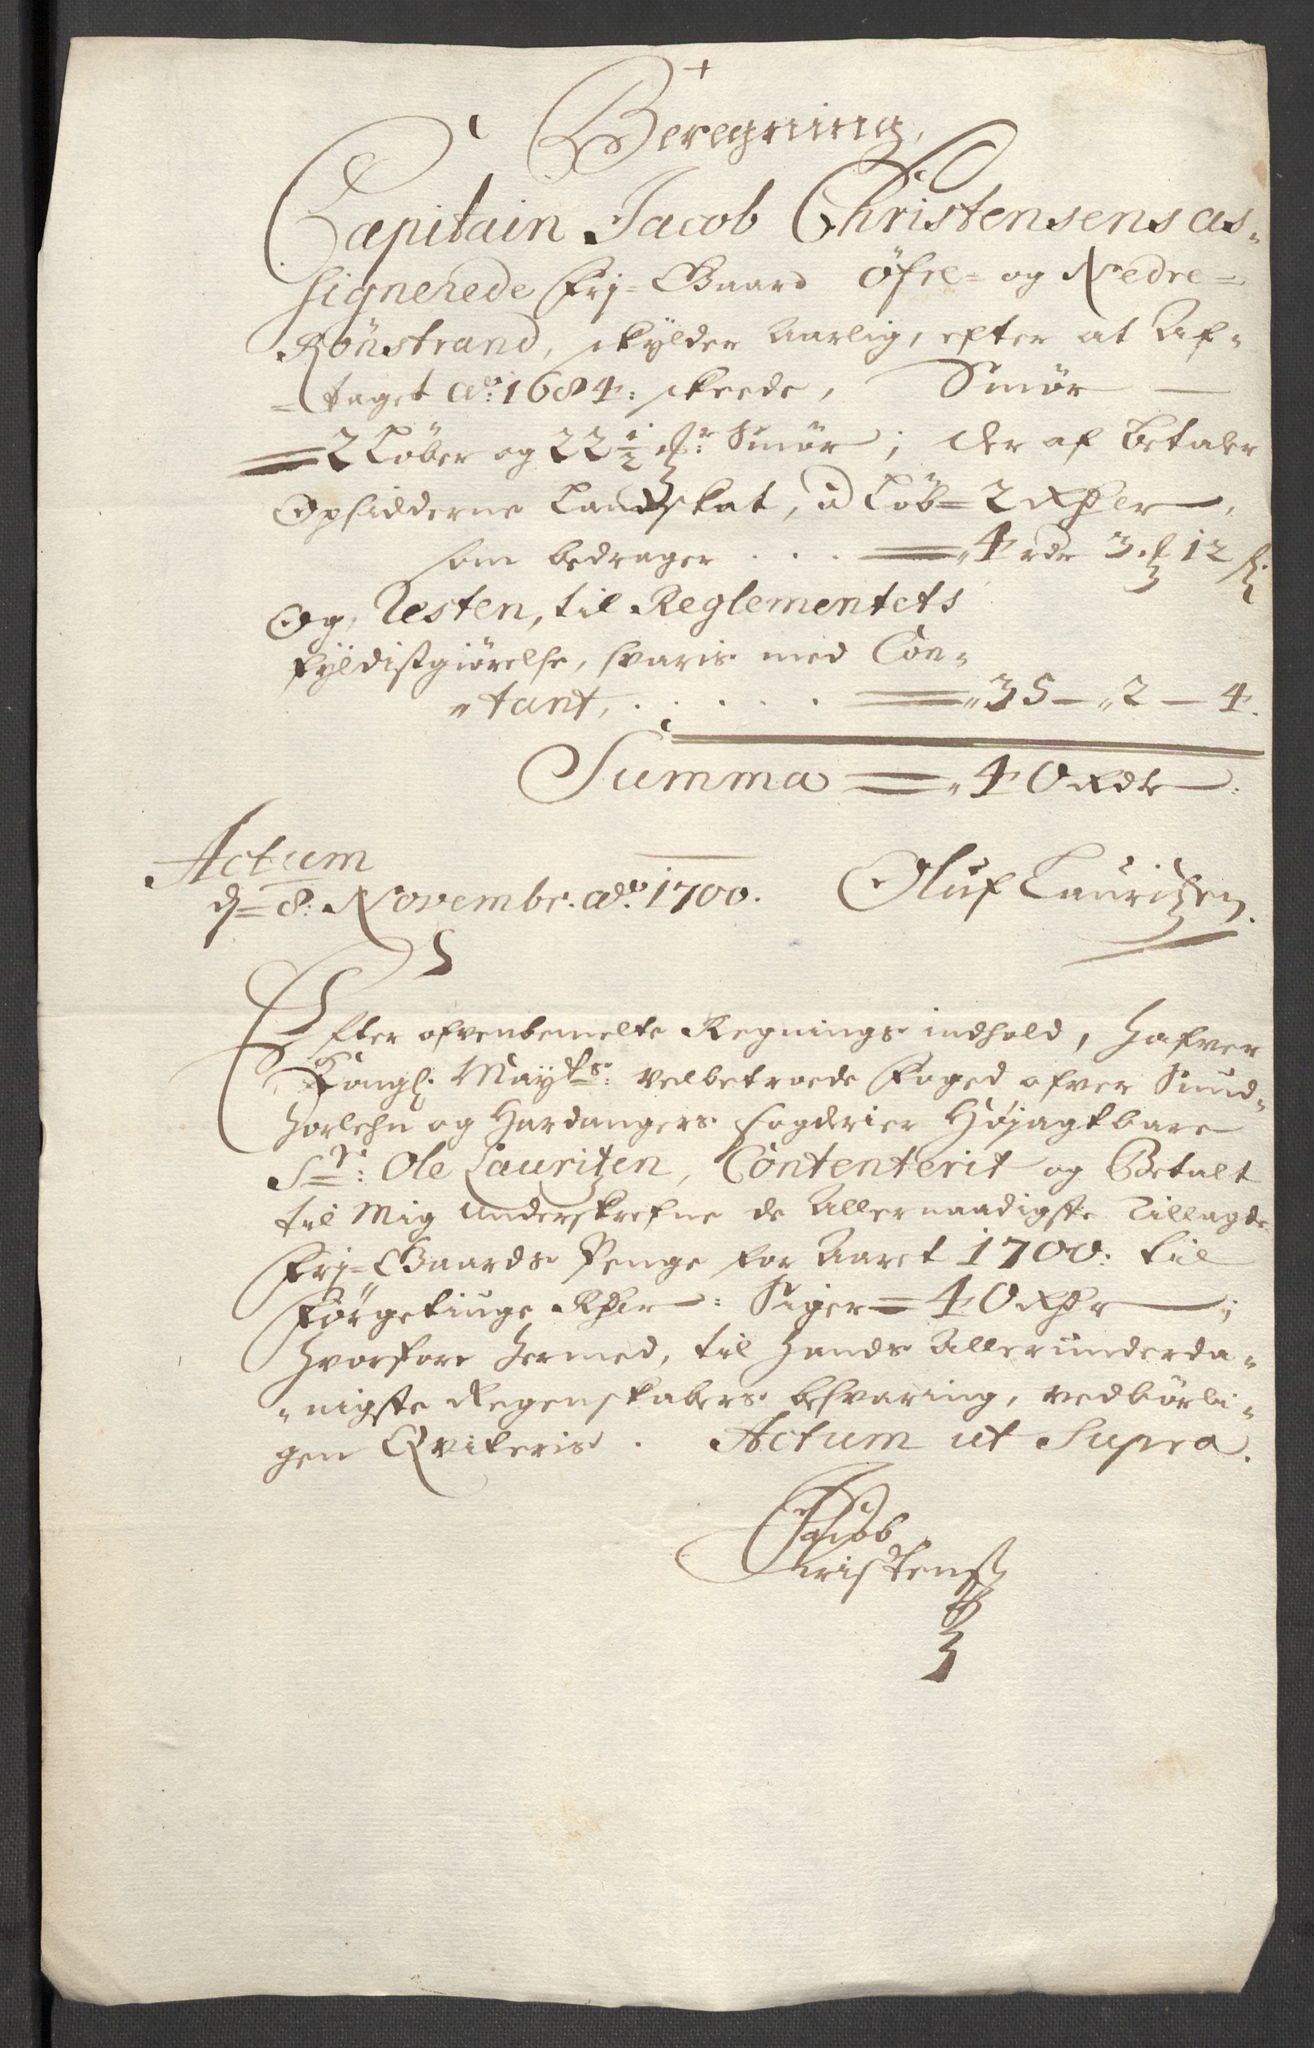 Beregning,
Capitain Jacob Christensens as-
signerede Frj-Gaard Øfre- og Nedre-
Rönstrand, skylder Aarlig, efter at Af-
taget Ao: 1684: skeede, Smör
2 Löber og 22 1/2 Smör; der af betaler
Opsidderne Landskat, à Löb 2 Rdler,
som bedrager . . . 4 rdr 3 12
Og Resten, til Reglementets
fyldistgiörelse, svaris med Con-
tant, . . . . . 35 - 2 - 4.
Summa 40 Rdr
Actum
d= 8: Novembr. Ao: 1700. Oluf Lauritzen.
Efter ofvenbemelte Regnings indhold, hafver
Kongl. Mayts: velbetroede Foged ofver Sund-
horlehn og Hardangers fogderier Højagtbare
Sr: Ole Lauritzen, Contenterit og Betalt
til Mig underskrefne de Allernaadigste Tillagde
Frj-Gaards Penge for Aaret 1700: til
Förgetiuge Rdler: Siger 40 Rdr;
hvorfore hermed, til hands Allerunderda-
nigste Regenskabers besvaring, vedbörli-
gen Qviteris. Actum ut Supra.
Jacob
Christens